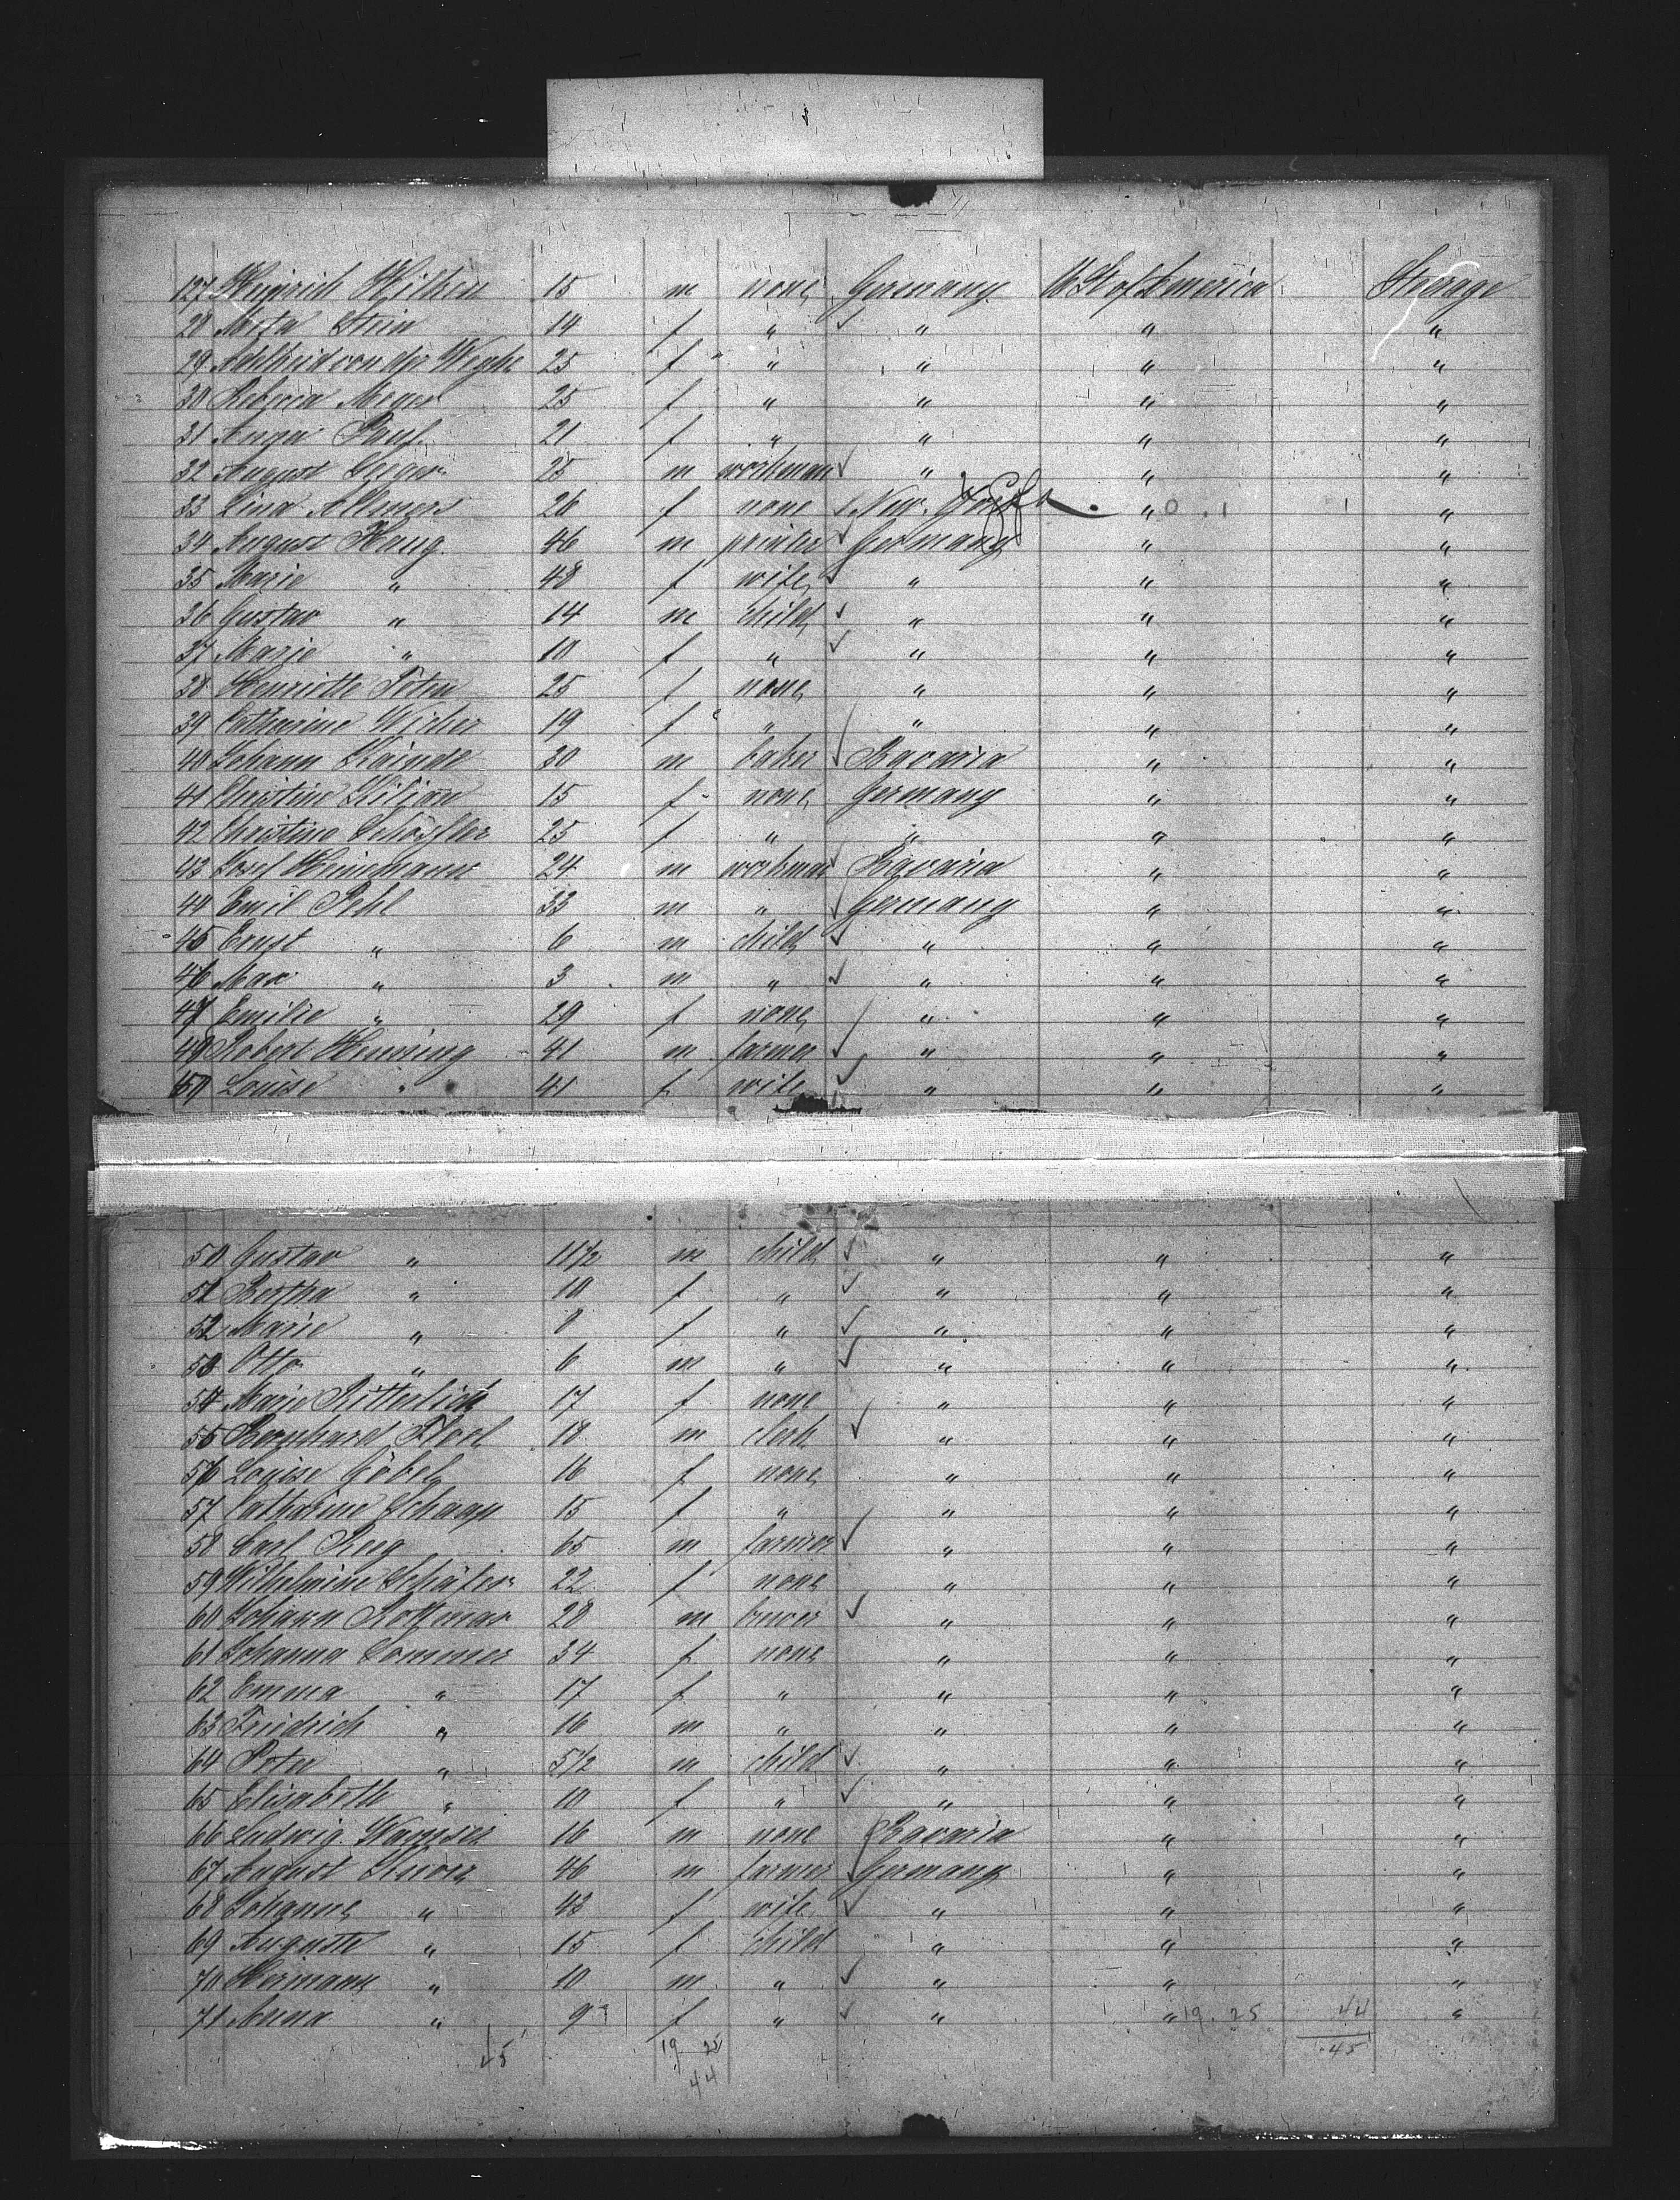 127 Heinrich Wilken 15 m none Germany U St of America Steerage
28 Meta Stein 14 f " " " "
29 Adelheid von der Weyhe 25 f " " " "
30 Rebecca Meyer 25 f " " " "
31 Anna 21 f " " " "
32 August Geiger 25 m workman " " "
33 Lina Allmers 26 f none New York " "
34 August Haug 46 m printer Germany " "
35 Marie " 48 f wife " " "
36 Gustav " 14 m child " " "
37 Marie " 10 f " " " "
38 Henriette 25 f none " " "
39 Catharine Wicher 19 f " " " "
40 Johann 30 m baker Bavaria " "
41 Christine Kilian 15 f none Germany " "
42 Christine 25 f " " " "
43 Josef Heinemann 24 m workman Bavaria " "
44 Emil Pehl 33 m " Germany " "
45 Ernst " 6 m child " " "
46 Max " 3 m " " " "
47 Emilie " 29 f none " " "
48 Robert Henning 41 m farmer " " "
Louise " 41 f wife " " "
50 Gustav " 11½ m child " " "
51 Bertha " 10 f " " " "
52 Marie " 8 f " " " "
53 Otto " 6 m " " " "
54 Marie Ritterlich 17 f none " " "
55 Bernhard 18 m clerk " " "
56 Louise Göbel 16 f none " " "
57 Catharine Schaap 15 f " " " "
58 Carl Rug 65 m farmer " " "
59 Wilhelmine Schäfer 22 f none " " "
60 Johann Rottmar 28 m brewer " " "
61 Johanna Sommer 34 f none " " "
62 Emma " 17 f " " " "
63 Friedrich " 16 m " " " "
64 Peter " 5½ m child " " "
65 Elisabeth " 10 f " " " "
66 Ludwig Wamser 16 m none Bavaria " "
67 August 46 m farmer Germany " "
68 Johanne " 43 f wife " " "
69 Auguste " 15 f child " " "
70 Hermann " 10 m " " " "
71 Anna " 9 f " " " 19. 25 44 "
45 19 25 45
44